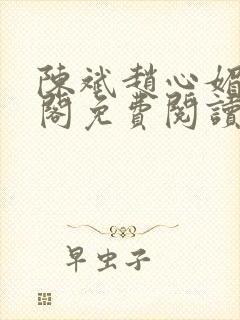 陳斌趙心媚
閣免費閱讀
早虫子